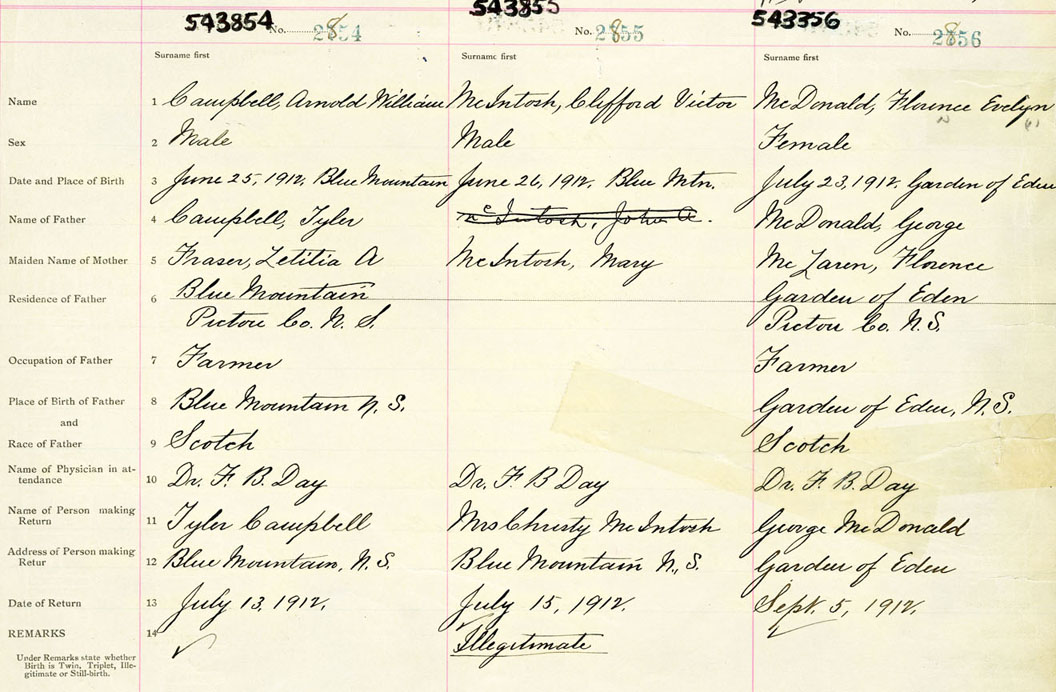 543854 No. 2854 543855 No. 2855 543356 No. 2856
Surname first Surname first Surname first
Name 1 Campbell, Arnold William McIntosh, Clifford Victor McDonald, Florence Evelyn
Sex 2 Male Male Female
Date and Place of Birth 3 June 25, 1912. Blue Mountain June 26, 1912. Blue Mtn. July 23, 1912. Garden of Eden
Name of Father 4 Campbell, Tyler McIntosh, John A. McDonald, George
Maiden Name of Mother 5 Fraser, Letitia A McIntosh, Mary McLaren, Florence
Residence of Father 6 Blue Mountain Garden of Eden
Pictou Co. N. S. Pictou Co. N.S.
Occupation of Father 7 Farmer Farmer
Place of Birth of Father 8 Blue Mountain N. S. Garden of Eden, N.S.
and
Race of Father 9 Scotch Scotch
Name of Physician in at-
tendance 10 Dr. F. B. Day Dr. F. B Day Dr. F. B. Day
Name of Person making
Return 11 Tyler Campbell Mrs Christy McIntosh George McDonald
Address of Person making
Retur 12 Blue Mountain, N.S. Blue Mountain N.S. Garden of Eden
Date of Return 13 July 13, 1912. July 15, 1912. Sept. 5, 1912.
REMARKS 14 Illegitimate
Under Remarks state whether
Birth is Twin, Triplet, Ille-
gitimate or Still-birth.